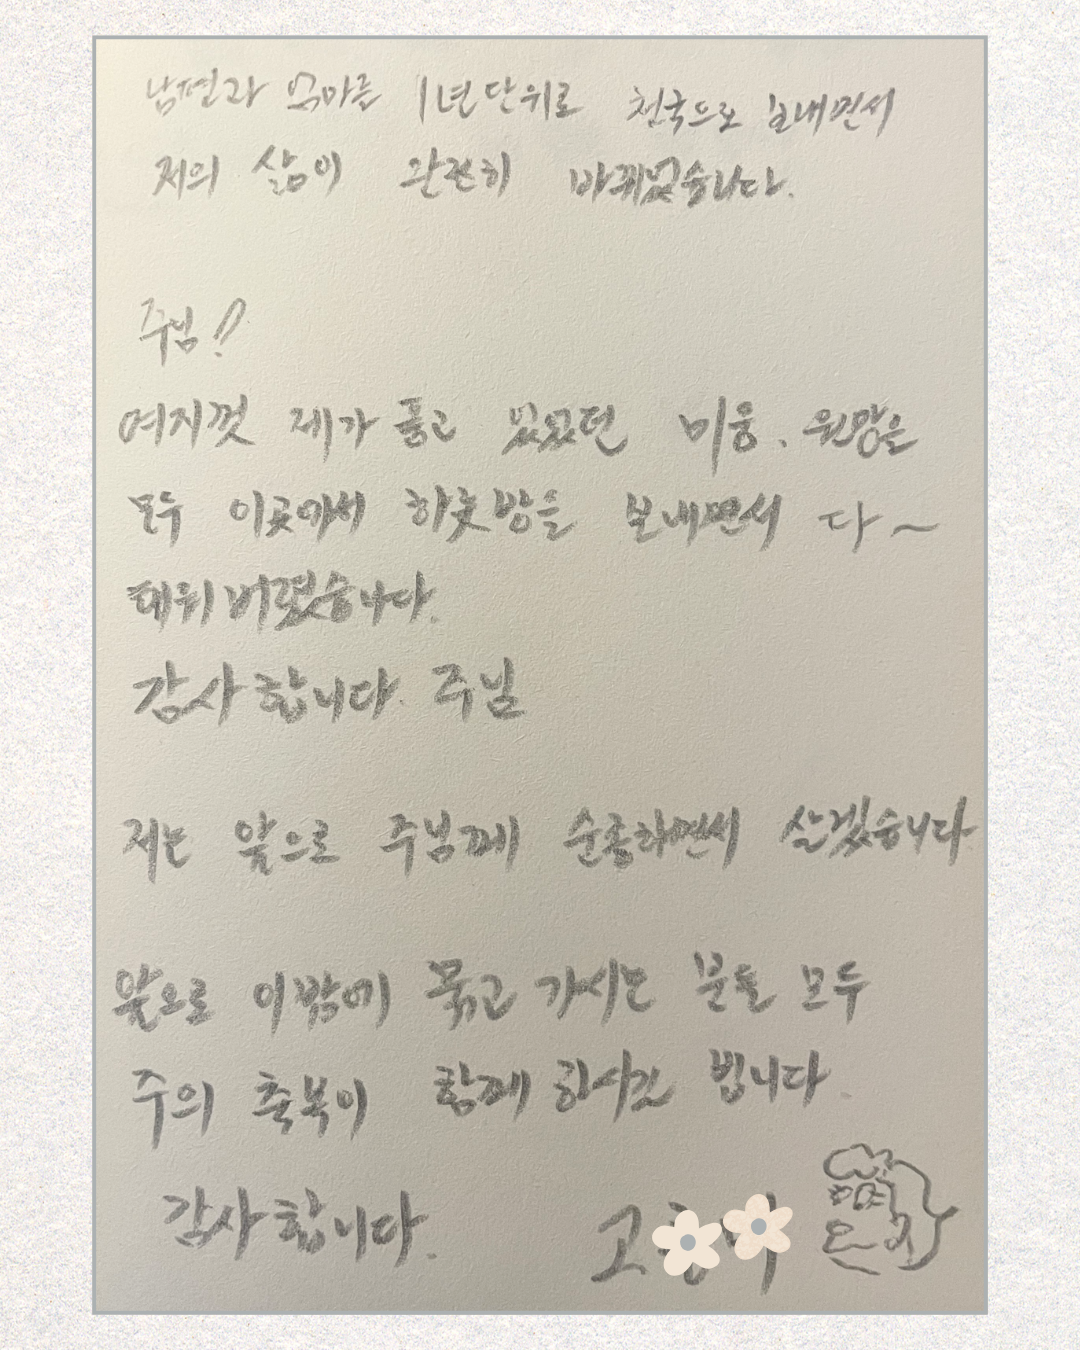 남편과 엄마를 1년 단위로 천국으로 보내면서
저의 삶이 완전히 바뀌었습니다.
주님!
여지껏 제가 품고 있었던 미움, 원망을
모두 이곳에서 하룻밤을 보내면서 다~
태워버렸습니다.
감사합니다. 주님
저는 앞으로 주님께 순종하면서 살겠습니다
앞으로 이 방에 묵고 가시는 분들 모두
주의 축복이 함께 하시길 빕니다.
감사합니다. 고